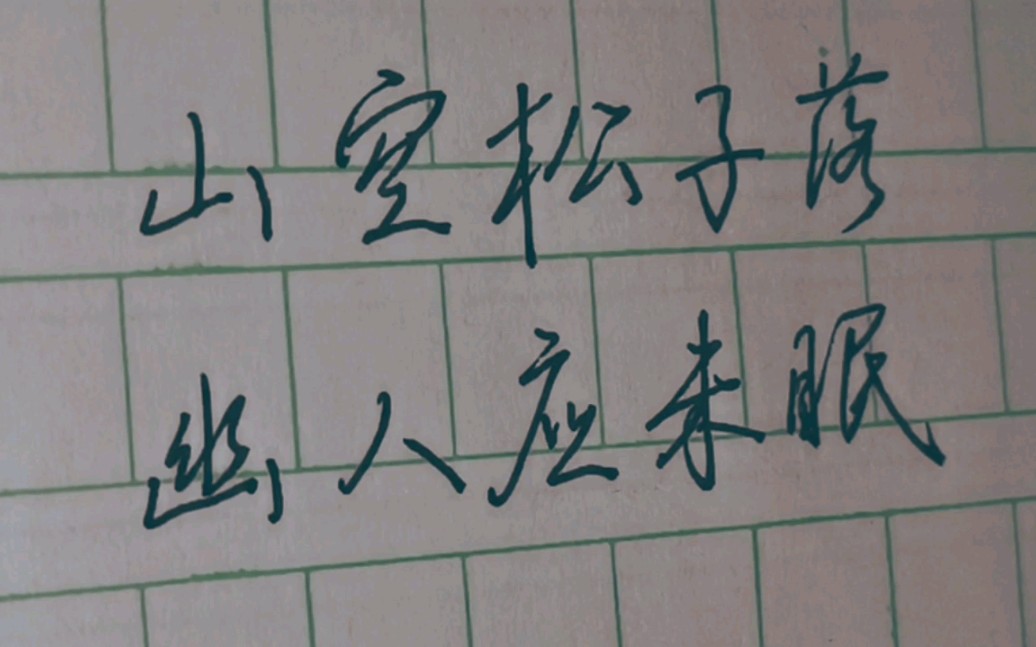 山空松子落
幽人应未眠